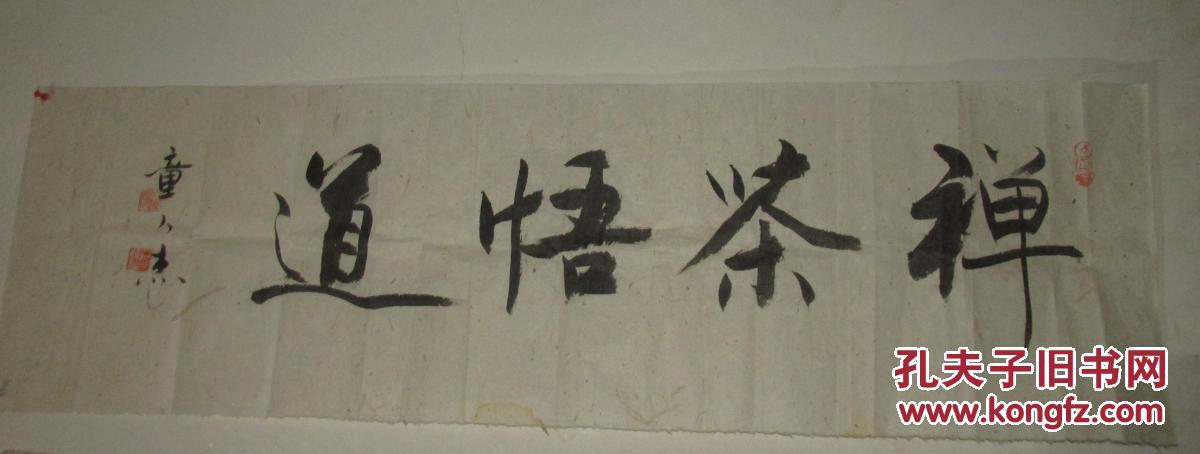 禅茶悟道
童人杰
孔夫子旧书网
www.kongfz.com